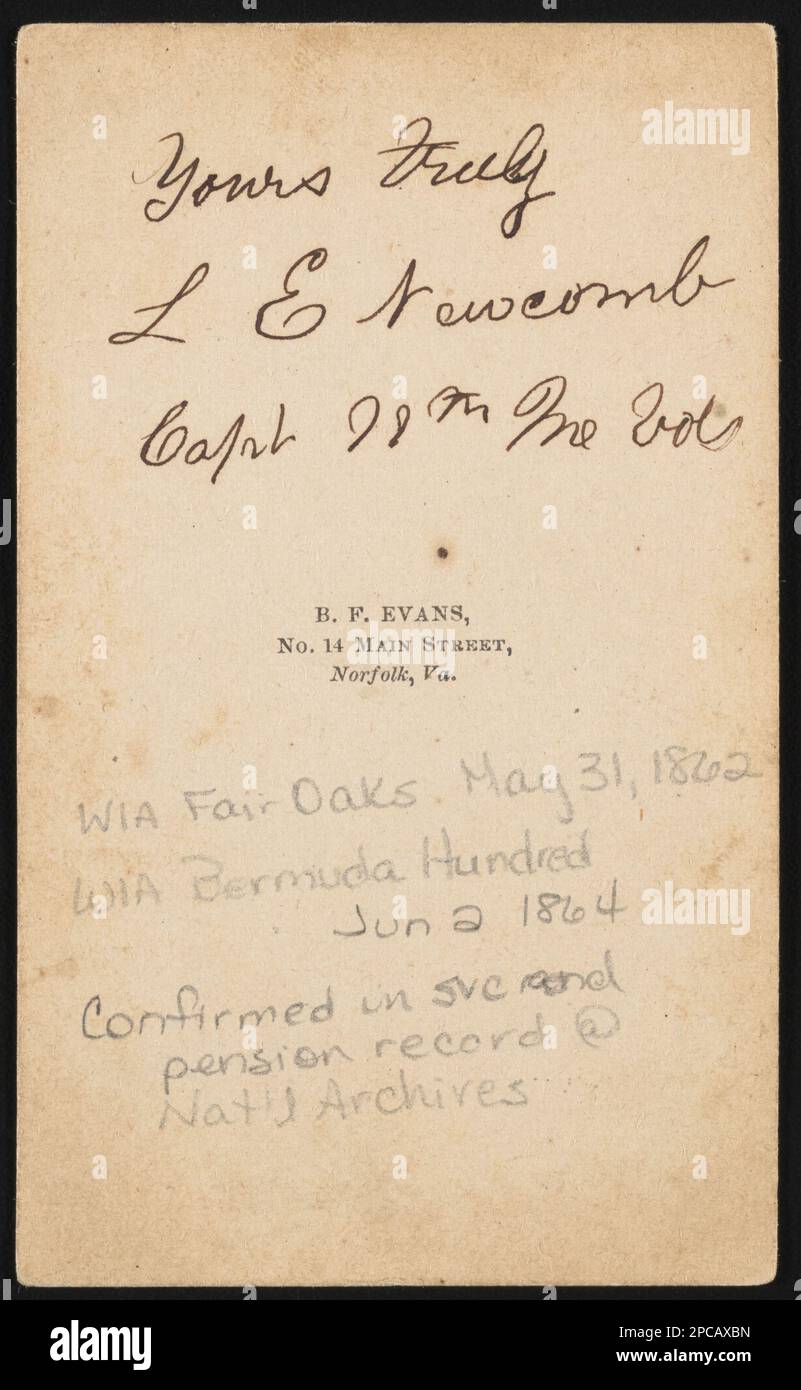 Yours Truly
L E Newcomb
Capt 11th Me Vols
B. F. EVANS,
No. 14 MAIN STREET,
Norfolk, Va.
WIA Fair Oaks May 31, 1862
WIA Bermuda Hundred
Jun 2 1864
Confirmed in svc and
pension record @
Nat'l Archives
alamy
alamy
Image ID: 2PCAXBN
www.alamy.com